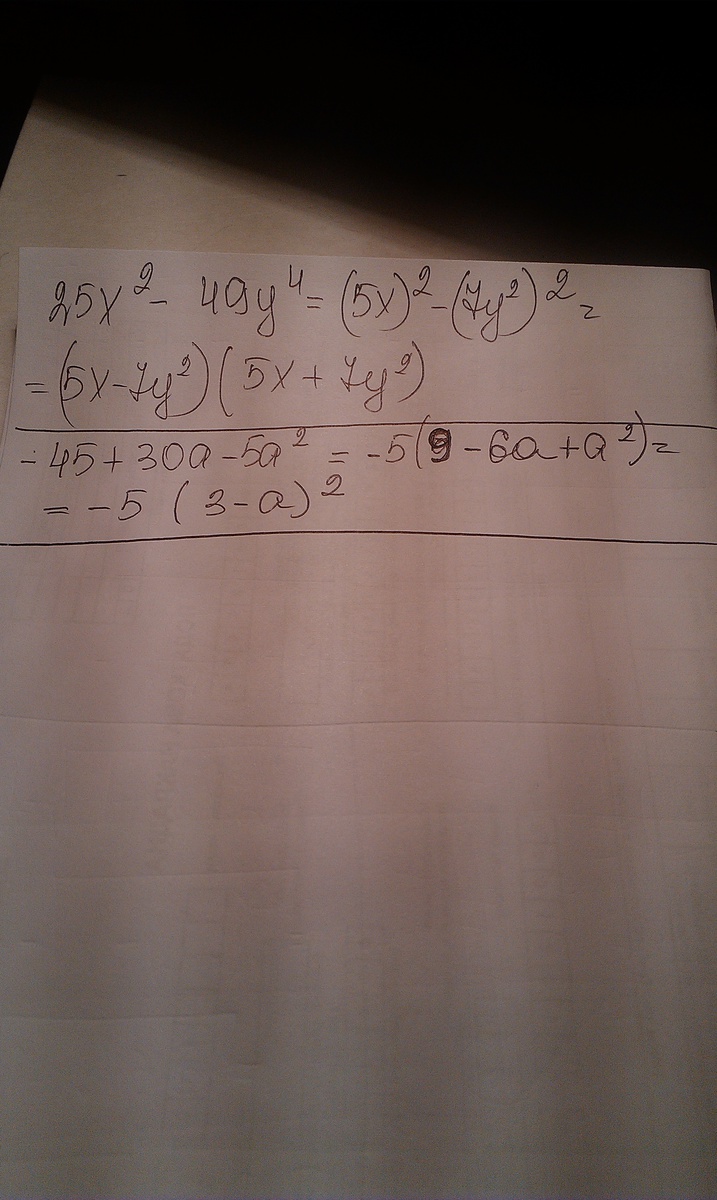 25x² - 49y⁴ = (5x)² - (7y²)² =
= (5x - 7y²)(5x + 7y²)
- 45 + 30a - 5a² = -5(9 - 6a + a²) =
= -5 (3 - a)²